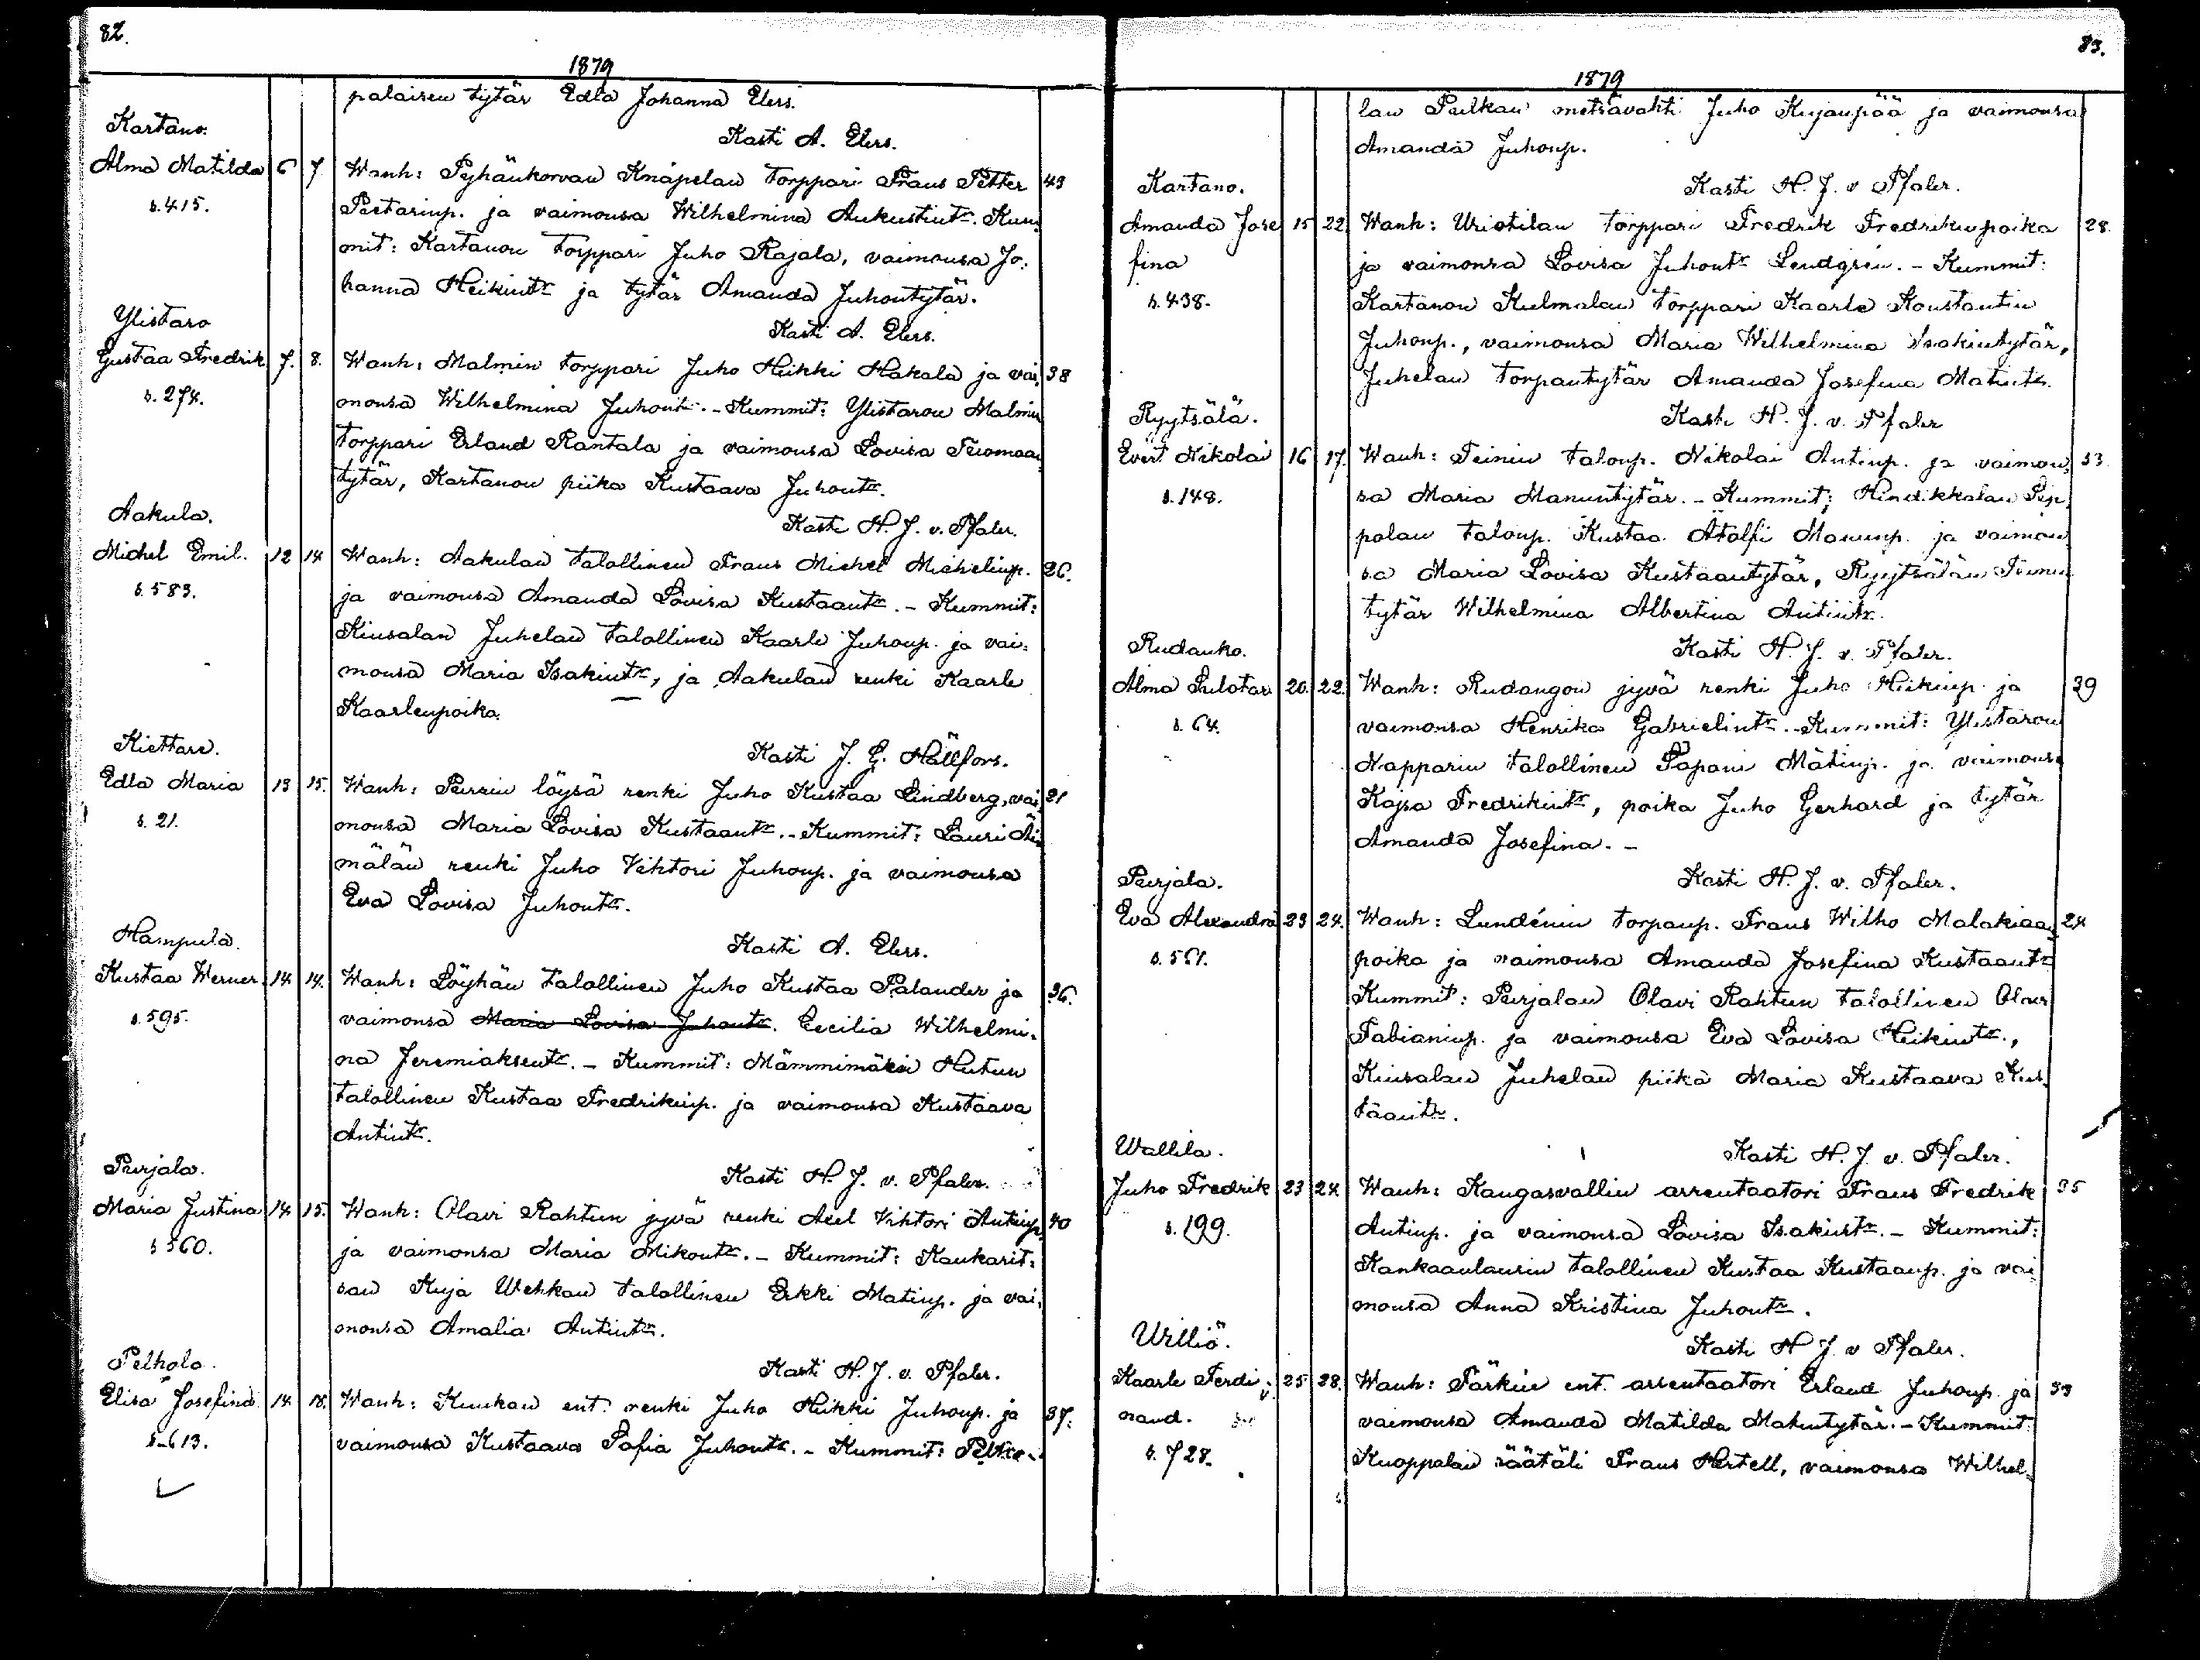 82.
1879
palaisen tytär Edla Johanna Elers.
Kasti A. Elers.
Kartano.
Alma Matilda 6 7. Wanh: Pyhänkorvan Knaapelan torppari Frans Petter 43
s. 415. Peetarinp. ja vaimonsa Wilhelmina Aukustint:r. Kum-
mit: Kartanon torppari Juho Rajala, vaimonsa Jo-
hanna Heikint:r ja tytär Amanda Juhontytär.
Kasti A. Elers.
Ylistaro
Gustaa Fredrik 7. 8. Wanh: Malmin torppari Juho Heikki Hakala ja vai- 38
s. 274. monsa Wilhelmina Juhont:r. - Kummit: Ylistaron Malmin
torppari Erland Rantala ja vaimonsa Lovisa Tuomaan-
tytär, Kartanon piika Kustaava Juhont:r.
Kasti H. J. v. Pfaler.
Aakula.
Michel Emil. 12 14 Wanh: Aakulan talollinen Frans Michel Michelinp. 26.
s. 583. ja vaimonsa Amanda Lovisa Kustaant:r. - Kummit:
Kiusalan Juhelan talollinen Kaarle Juhonp. ja vai-
monsa Maria Isakint:r, ja Aakulan renki Kaarle
Kaarlenpoika.
Kasti J. G. Hällfors.
Kiettare.
Edla Maria 13 15. Wanh: Purrin löysä renki Juho Kustaa Lindberg, vai- 21
s. 21. monsa Maria Lovisa Kustaant:r. - Kummit: Lauri Äi-
mälän renki Juho Vihtori Juhonp. ja vaimonsa
Eva Lovisa Juhont:r.
Kasti A. Elers.
Hampula.
Kustaa Werner. 14 14. Wanh: Löyhän talollinen Juho Kustaa Palander ja 36.
s. 595. vaimonsa Maria Lovisa Juhont:r. Cecilia Wilhelmi-
na Jeremiaksent:r. - Kummit: Mämmimäen Hutun
talollinen Kustaa Fredrikinp. ja vaimonsa Kustaava
Antint:r.
Kasti H. J. v. Pfaler.
Purjala.
Maria Justina 14 15. Wanh: Olavi Rahtun jyvä renki Axel Vihtori Antinp. 40
s 560. ja vaimonsa Maria Mikont:r. - Kummit: Kaukarit-
san Kuja Wehkan talollinen Erkki Matinp. ja vai-
monsa Amalia Antint:r.
Kasti H. J. v. Pfaler.
Pelhola.
Elisa Josefina. 14 18. Wanh: Kuukan ent. renki Juho Heikki Juhonp. ja 37.
s. 613. vaimonsa Kustaava Sofia Juhont:r. - Kummit: Pelho-
83.
1879
lan Pulkan metsävahti Juho Kujanpää ja vaimonsa
Amanda Juhonp.
Kasti H. J. v Pfaler.
Kartano.
Amanda Jose 15 22 Wanh: Uriotilan torppari Fredrik Fredrikinpoika 28.
fina ja vaimonsa Lovisa Juhont:r Lendgrén. - Kummit:
s. 438. Kartanon Kulmalan torppari Kaarle Konstantin
Juhonp., vaimonsa Maria Wilhelmina Isakintytär,
Juhelan torpantytär Amanda Josefina Matint:r.
Kasti H. J. v. Pfaler
Ryytsälä.
Evert Nikolai 16 17. Wanh: Teinin talonp. Nikolai Antinp. ja vaimon- 33
s. 148. sa Maria Manuntytär. - Kummit; Hindikkalan Sep-
palan talonp. Kustaa Atolfi Manunp. ja vaimon-
sa Maria Lovisa Kustaantytär, Ryytsälän Teinin
tytär Wilhelmina Albertina Antint:r.
Kasti H. J. v. Pfaler.
Rudanko.
Alma Sulotar 20. 22. Wanh: Rudangon jyvä renki Juho Heikinp. ja 39
s. 64. vaimonsa Henrika Gabrielint:r. - Kummit: Ylistaron
Napparin talollinen Tapani Matinp. ja vaimonsa
Kajsa Fredrikint:r, poika Juho Gerhard ja tytär
Amanda Josefina. -
Kasti H. J. v. Pfaler.
Purjala.
Eva Alexandra 23 24. Wanh: Lundénin torpanp. Frans Wilho Malakiaan- 24
s. 561. poika ja vaimonsa Amanda Josefina Kustaant:r
Kummit: Purjalan Olavi Rahtun talollinen Olavi
Fabianinp. ja vaimonsa Eva Lovisa Heikint:r.,
Kiusalan Juhelan piika Maria Kustaava Kus-
taant:r.
Kasti H. J. v. Pfaler.
Wallila.
Juho Fredrik 23 24 Wanh: Kangasvallin arrentaatori Frans Fredrik 35
s. 199. Antinp. ja vaimonsa Lovisa Isakint:r. - Kummit:
Kankaanlaurin talollinen Kustaa Kustaanp. ja vai
monsa Anna Kristina Juhont:r.
Kasti H J. v Pfaler.
Williö.
Kaarle Ferdi- 25 28. Wanh: Särkin ent. arrentaatori Erland Juhonp. ja 33
nand. vaimonsa Amanda Matilda Makuntytär. - Kummit:
s. 728. Kuoppalan räätäli Frans Hertell, vaimonsa Wilhel-